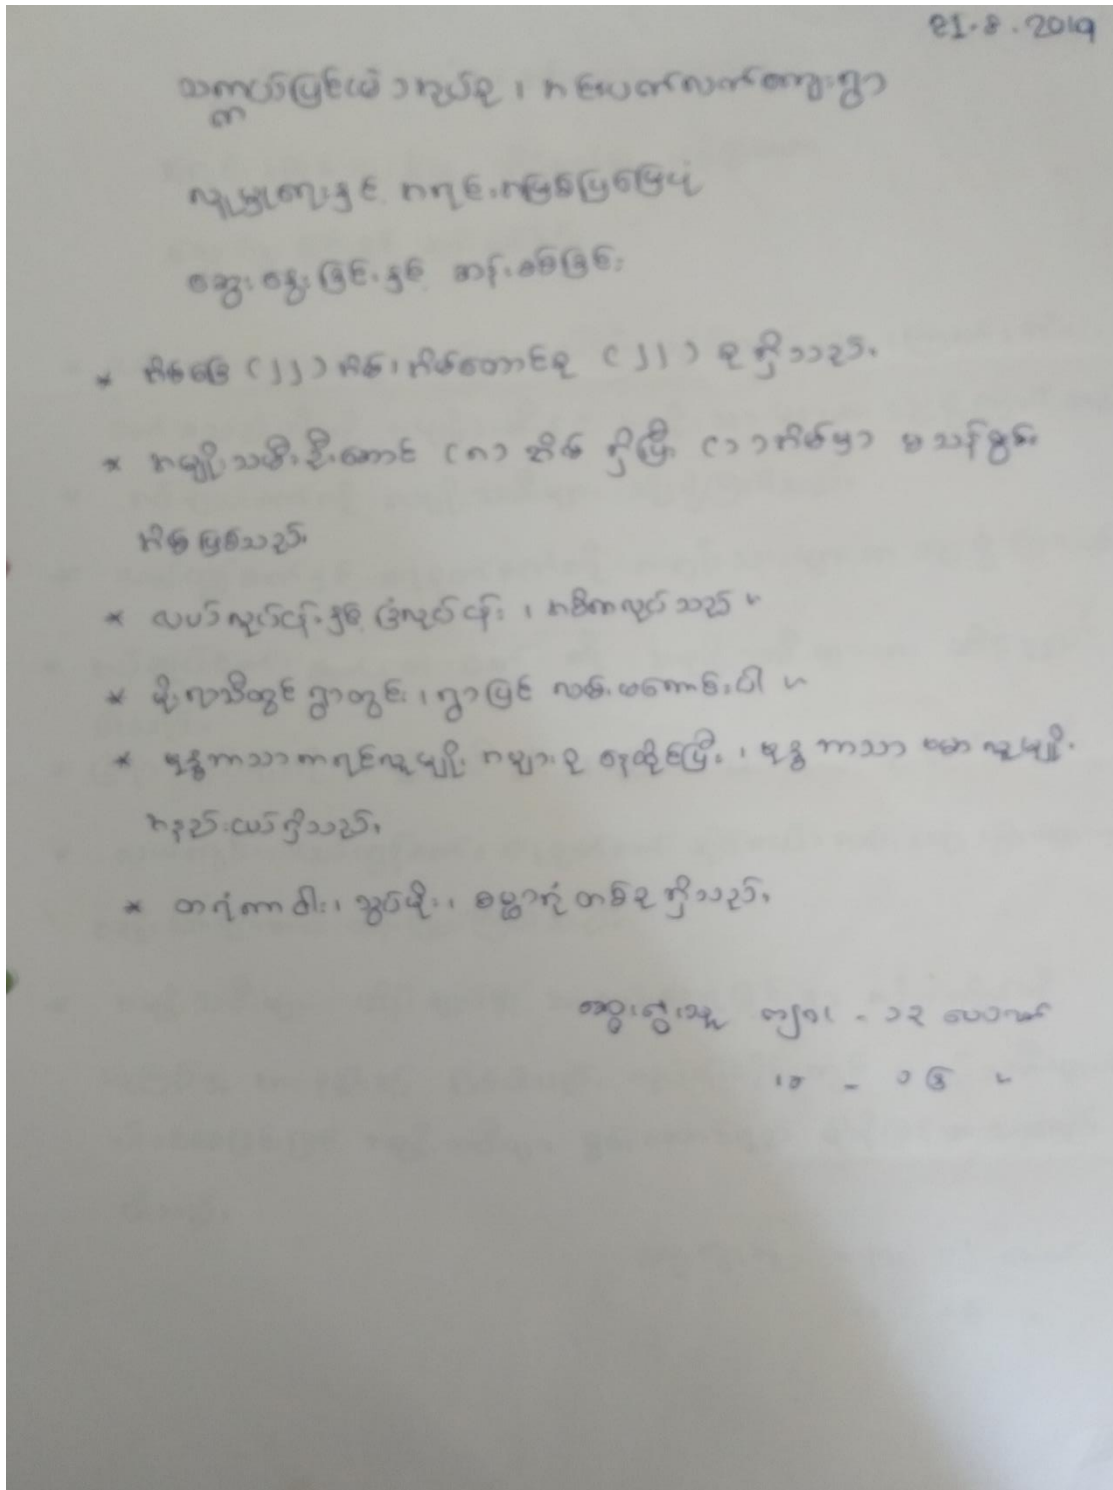 21.8.2019
လူမှုရေးနှင့် အရင်းအမြစ်ပြမြေပုံ
ဆွေးနွေးခြင်းနှင့် ဆန်းစစ်ခြင်း
* အိမ်ခြေ (၂၂) အိမ်၊ အိမ်ထောင်စု (၂၂) စု ရှိသည်။
* အမျိုးသမီးဦးဆောင် (၈) အိမ် ရှိပြီး (၁) အိမ်မှာ မသန်စွမ်း
အိမ်ဖြစ်သည်။
* လယ်လုပ်ငန်းနှင့် ခြံလုပ်ငန်း၊ အဓိကလုပ်သည်။
* မိုးရာသီတွင် ရွာတွင်း၊ ရွာပြင် လမ်းမကောင်းပါ။
* ဗုဒ္ဓဘာသာကရင်လူမျိုး အများစု နေထိုင်ပြီး၊ ဗုဒ္ဓဘာသာ ဗမာလူမျိုး
အနည်းငယ်ရှိသည်။
* တရံတာဝါး၊ သွပ်မိုး၊ ဓမ္မာရုံ တစ်ခုရှိသည်။
ဆွေးနွေးသူ ကျား - ၁၃ ယောက်
မ - ၁၆ "